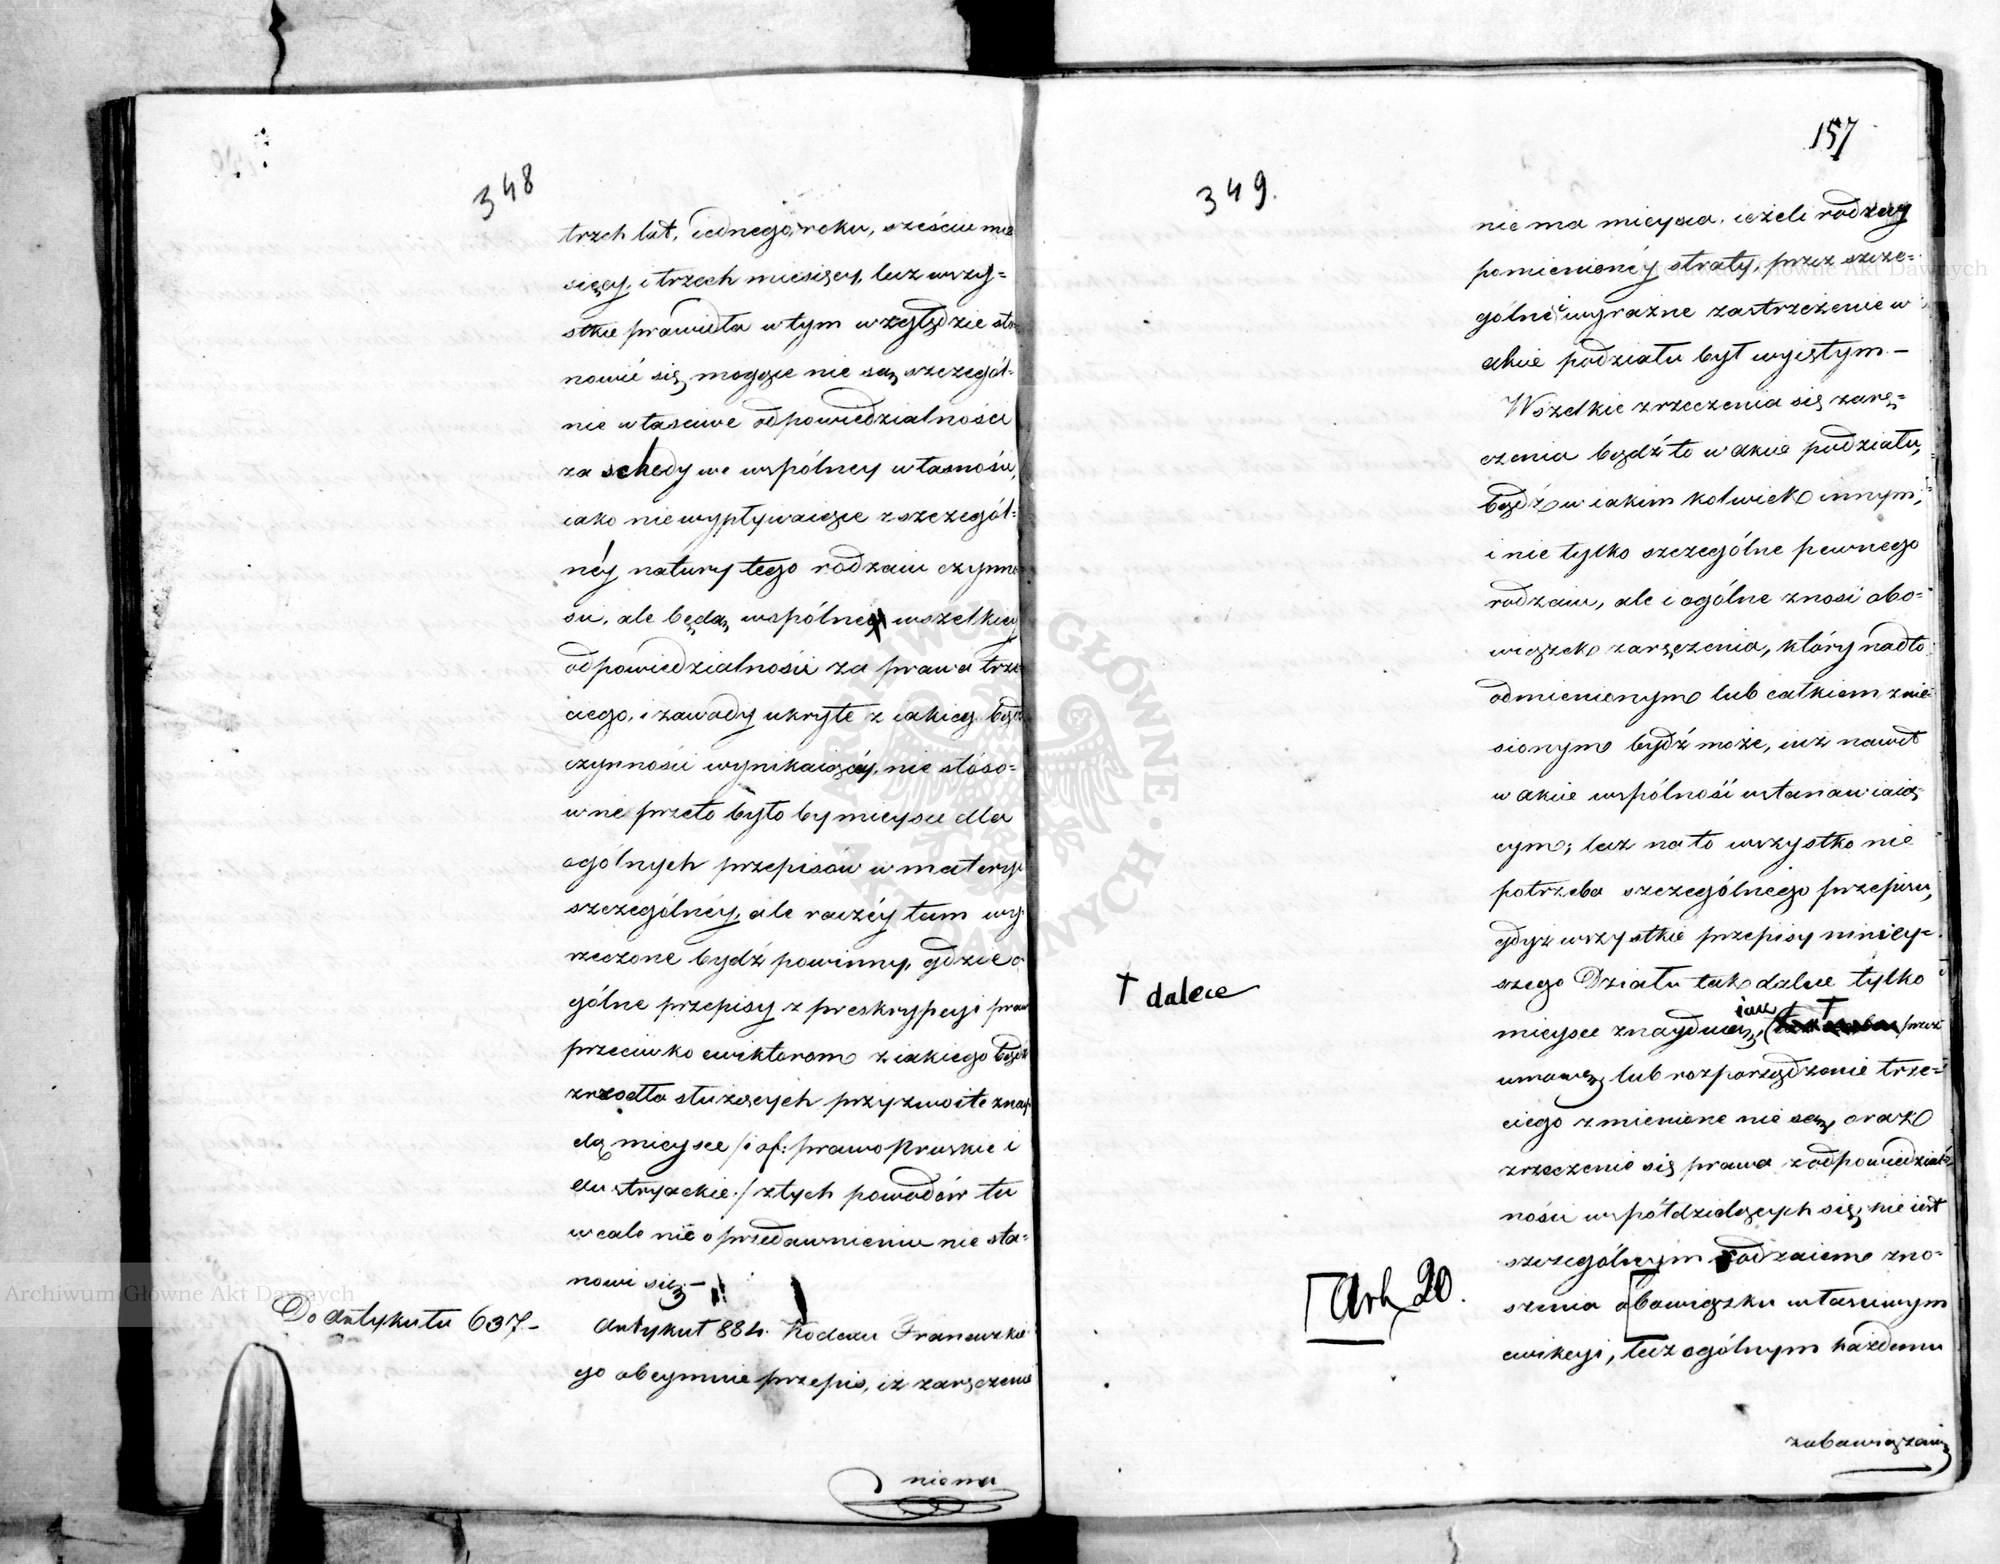 348
trzech lat, iednego roku, sześciu mie
sięcy, i trzech miesięcy, lecz wszy=
stkie prawidła w tym względzie sta=
nowić się mogące nie są szczegól=
nie właściwe odpowiedzialności
za schedy we wspólney własności,
iako nie wypływaiące z szczegól=
néy natury tego rodzaiu czynno
ści, ale będą wspólne wszelkiey
odpowiedzialności za prawa trze
ciego, i zawady ukryte z iakiey bądź
czynności wynikaiącéy, nie stoso=
wne przeto było by mieysce dla
ogólnych przepisów w materyi
szczególnéy, ale raczéy tam wy
rzeczone bydź powinny, gdzie o
gólne przepisy z preskrypcyi praw
przeciwko ewiktorom z iakiego bądź
zrzodła służących przyzwoite znay
dą mieysce /: cf: prawo Pruskie i
Austryackie :/ z tych powodów tu
wcale nic o przedawnieniu nie sta=
nowi się. –
Do Artykułu 637. –
Artykuł 884. Kodexu Francuzkie
go obeymuie przepis, iż zaręczenie
niema
157
349.
nie ma mieysca, ieżeli rodzay
pomienionéy straty, przez szcze=
gólne i wyraźne zastrzeżenie w
akcie podziału był wyiętym –
Wszelkie zrzeczenia się zarę=
czenia bądź to w akcie podziału,
bądź w iakim kolwiek innym,
i nie tylko szczególne pewnego
rodzaiu, ale i ogólne znosi obo=
wiązek zaręczenia, który nadto
odmienionym lub całkiem znie
sionym bydź może, iuż nawet
w akcie wspólność ustanawiaią
cym; lecz na to wszystko nie
potrzeba szczególnego przepisu,
gdyż wszystkie przepisy ninіey=
szego Działu tak dalece tylko
† dalece
mieysce znayduią, iak † przez
umowę lub rozporządzenie trze=
ciego zmienione nie są, oraz
zrzeczenie się prawa z odpowiedzial=
ności współdzielących się, nie iest
szczególnym rodzaiem zno=
Ark 20.
szenia obowiązku właściwym
ewikcyi, lecz ogólnym każdemu
zobowiązaniu
Archiwum Główne Akt Dawnych
Archiwum Główne Akt Dawnych
Archiwum Główne Akt Dawnych
ARCHIWUM GŁÓWNE · AKT DAWNYCH ·